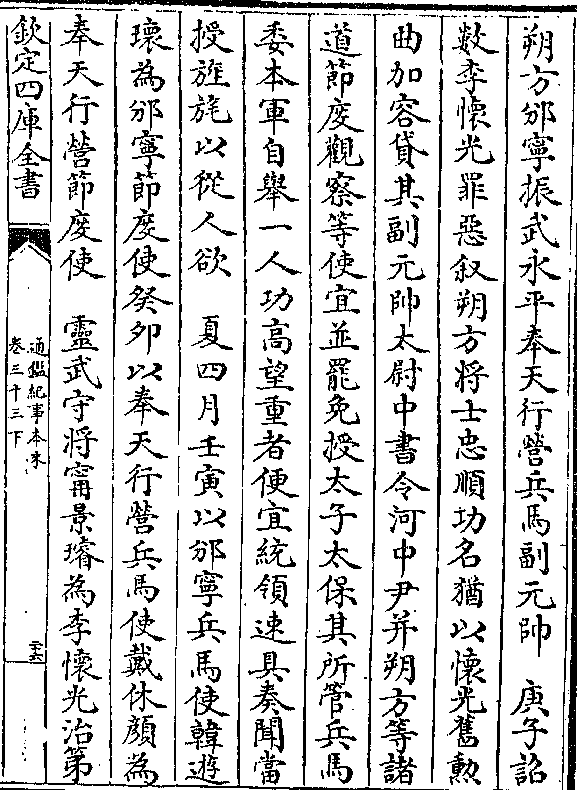 朔方邠寧振武永平奉天行營兵馬副元帥　庚子詔
數李懷光罪惡叙朔方將士忠順功名猶以懷光舊勲
曲加容貸其副元帥太尉中書令河中尹并朔方等諸
道節度觀察等使宜並罷免授太子太保其所管兵馬
委本軍自舉一人功高望重者便宜統領速具奏聞當
授旌旄以從人欲　夏四月壬寅以邠寧兵馬使韓遊
瓌為邠寧節度使癸卯以奉天行營兵馬使戴休顔為
奉天行營節度使　靈武守將甯景璿為李懷光治第
欽定四庫全書
通鑑紀事本末
卷三十三下
二十六